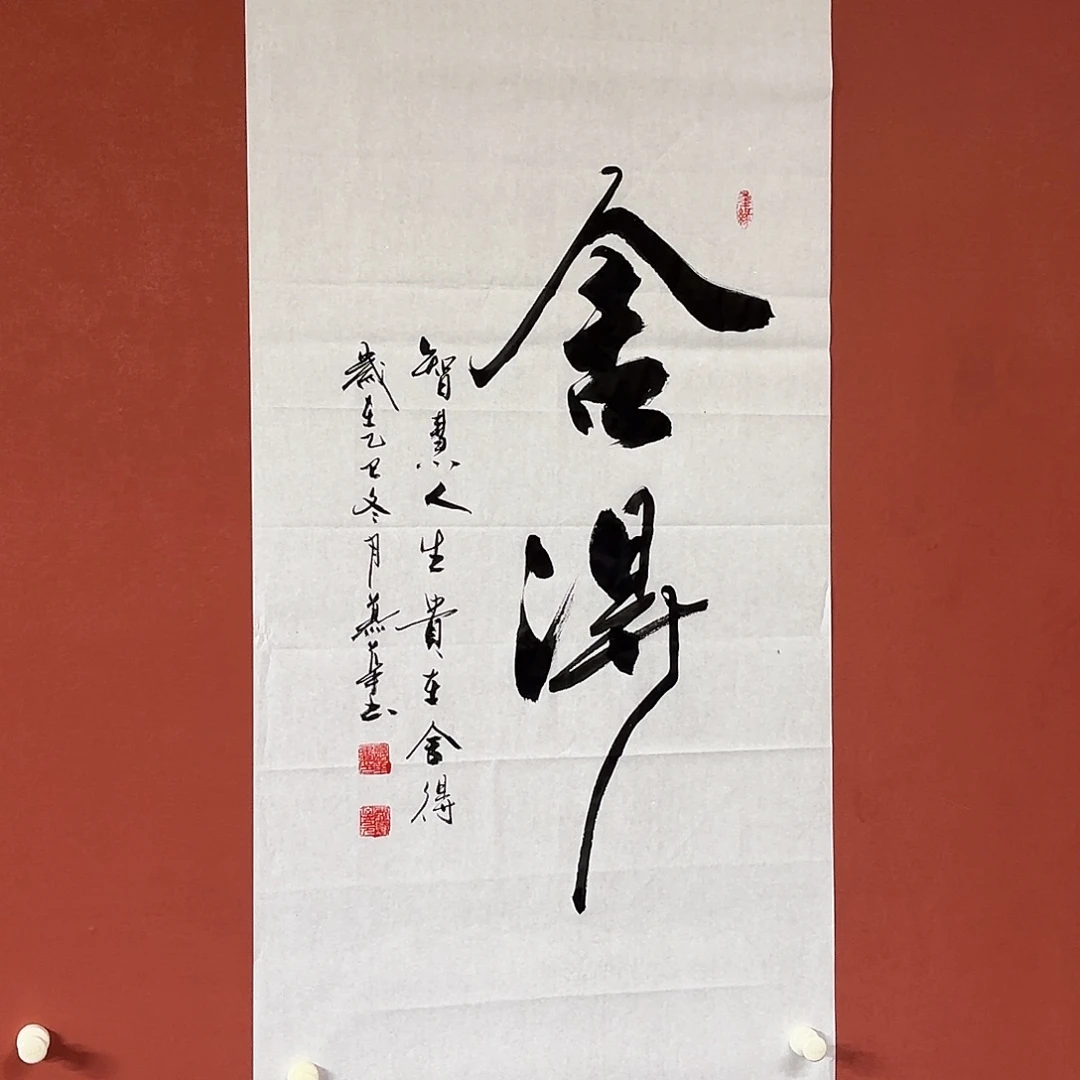 舍得
智慧人生貴在舍得
歲在乙巳冬月燕華书